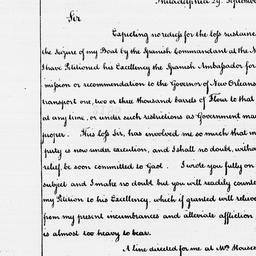 Philadelphia 29. September
Sir
Expecting no redress for the loss sustained
the Seizure of my Boat by the Spanish Commandant at the N
I have Petitioned his Excellency the Spanish Ambassador for
mission or recommendation to the Governor of New Orleans
transport one, two or three thousand barrels Flour to that
at any time, or under such restrictions as Government may
proper. This loss Sir, has involved me so much that m
perty is now under execution, and I shall no doubt, witho
relief, be soon committed to Gaol. I wrote you fully on
subject and I make no doubt but you will readily counte
my Petition to his Excellency, which if granted will relieve
from my present incumbrances and alleviate affliction
is almost too heavy to bear.
A line directed for me at Mrs House